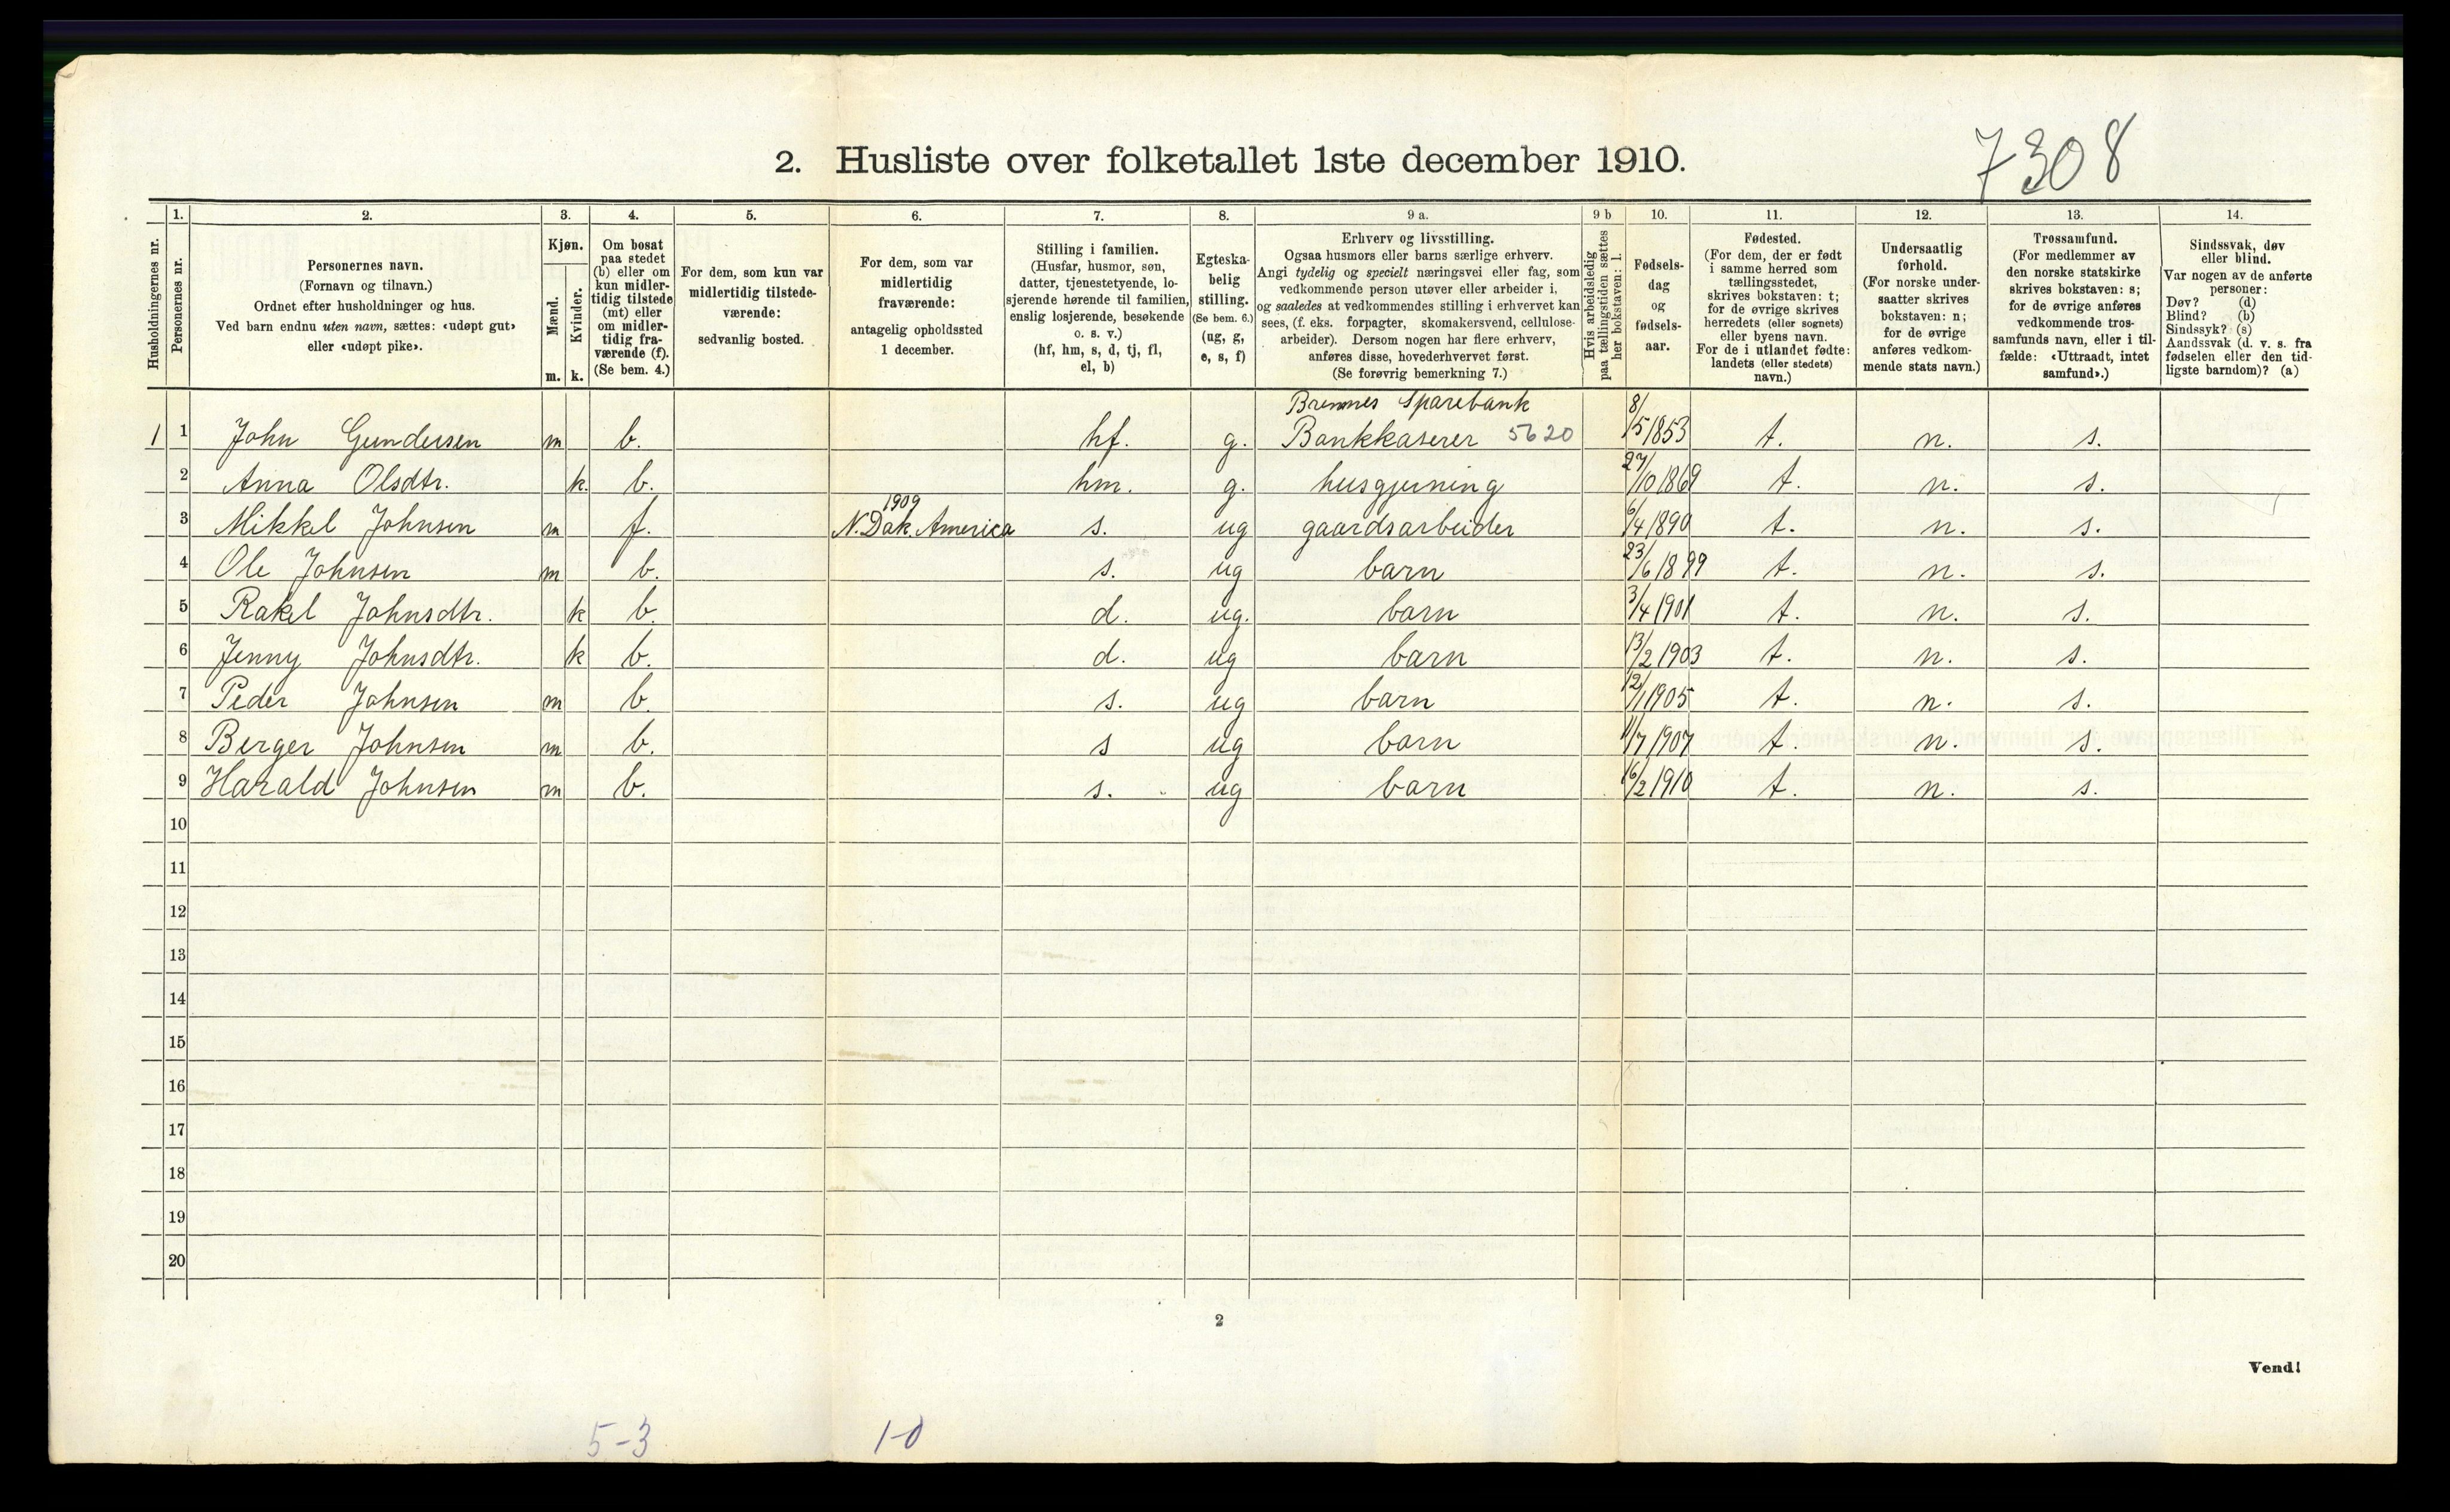 7308
2. Husliste over folketallet 1ste december 1910.
Husholdningernes nr.
1.
Personernes nr.
2.
Personernes navn.
(Fornavn og tilnavn.)
Ordnet efter husholdninger og hus.
Ved barn endnu uten navn, sættes: «udøpt gut»
eller «udøpt pike».
3.
Kjøn.
Mænd.
m.
Kvinder.
k.
4.
Om bosat
paa stedet
(b) eller om
kun midler-
tidig tilstede
(mt) eller
om midler-
tidig fra-
værende (f).
(Se bem. 4.)
5.
For dem, som kun var
midlertidig tilstede-
værende:
sedvanlig bosted.
6.
For dem, som var
midlertidig
fraværende:
antagelig opholdssted
1 december.
7.
Stilling i familien.
(Husfar, husmor, søn,
datter, tjenestetyende, lo-
sjerende hørende til familien,
enslig losjerende, besøkende
o. s. v.)
(hf, hm, s, d, tj, fl,
el, b)
8.
Egteska-
belig
stilling.
(Se bem. 6.)
(ug, g,
e, s, f)
9 a.
Erhverv og livsstilling.
Ogsaa husmors eller barns særlige erhverv.
Angi tydelig og specielt næringsvei eller fag, som
vedkommende person utøver eller arbeider i,
og saaledes at vedkommendes stilling i erhvervet kan
sees, (f. eks. forpagter, skomakersvend, cellulose-
arbeider). Dersom nogen har flere erhverv,
anføres disse, hovederhvervet først.
(Se forøvrig bemerkning 7.)
9 b
Hvis arbeidsledig
paa tællingstiden sættes
her bokstaven: l.
10.
Fødsels-
dag
og
fødsels-
aar.
11.
Fødested.
(For dem, der er født
i samme herred som
tællingsstedet,
skrives bokstaven: t;
for de øvrige skrives
herredets (eller sognets)
eller byens navn.
For de i utlandet fødte:
landets (eller stedets)
navn.)
12.
Undersaatlig
forhold.
(For norske under-
saatter skrives
bokstaven: n;
for de øvrige
anføres vedkom-
mende stats navn.)
13.
Trossamfund.
(For medlemmer av
den norske statskirke
skrives bokstaven: s;
for de øvrige anføres
vedkommende tros-
samfunds navn, eller i til-
fælde: «Uttraadt, intet
samfund».)
14.
Sindssvak, døv
eller blind.
Var nogen av de anførte
personer:
Døv? (d)
Blind? (b)
Sindssyk? (s)
Aandssvak (d. v. s. fra
fødselen eller den tid-
ligste barndom)? (a)
Bremnes Sparebank
1 1 John Gundersen m b. hf. g. Bankkaserer 5620 8/5 1853 t. n. s.
2 Anna Olsdtr. k. b. hm. g. husgjerning 27/10 1869 t. n. s.
1909
3 Mikkel Johnsen m f. N. Dak. America s. ug gaardsarbeider 6/4 1890 t. n. s.
4 Ole Johnsen m b. s. ug barn 23/6 1899 t. n. s.
5 Rakel Johnsdtr. k b. d. ug. barn 3/4 1901 t. n. s.
6 Jenny Johnsdtr. k b. d. ug barn 13/2 1903 t. n. s.
7 Peder Johnsen m b. s. ug barn 12/1 1905 t. n. s.
8 Berger Johnsen m b. s ug barn 11/7 1907 t. n. s.
9 Harald Johnsen m b. s. ug barn 16/2 1910 t. n. s.
10
11
12
13
14
15
16
17
18
19
20
2
Vend!
5-3 1-0